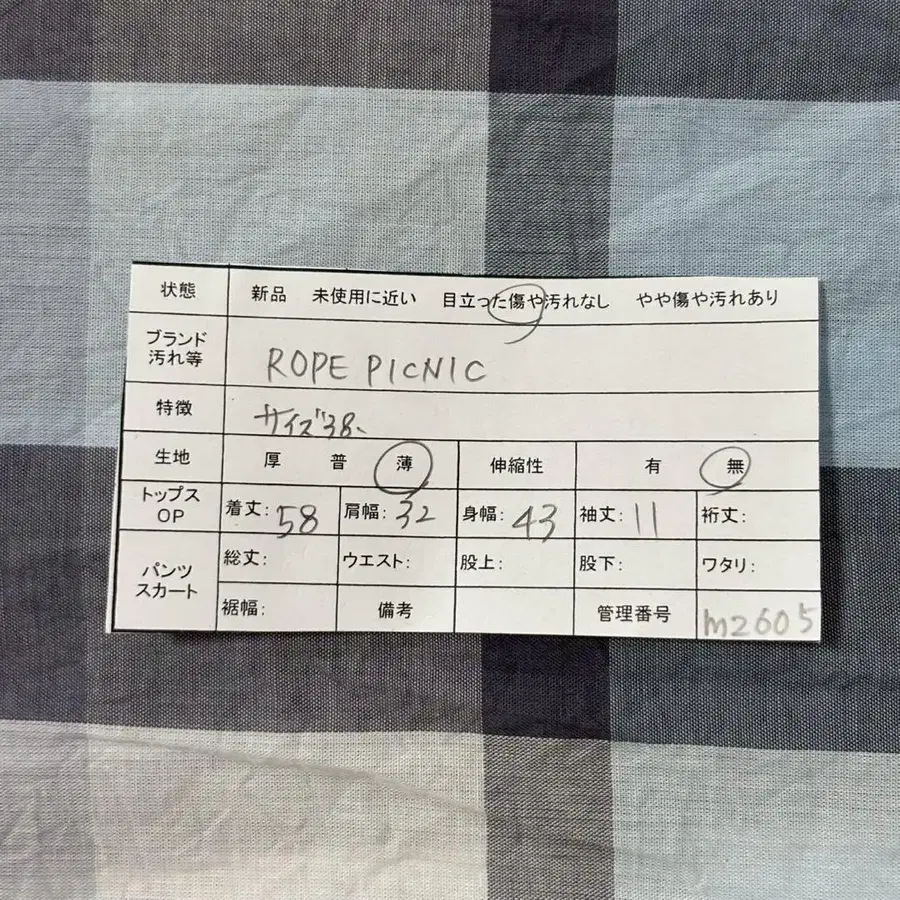 状態 新品 未使用に近い 目立った傷や汚れなし やや傷や汚れあり
ブランド
汚れ等
ROPE PICNIC
特徴 サイズ38、
生地 厚 普 薄 伸縮性 有 無
トップス
OP
着丈: 58 肩幅: 32 身幅: 43 袖丈: 11 裄丈:
パンツ
スカート
総丈: ウエスト: 股上: 股下: ワタリ:
裾幅: 備考 管理番号 m2605